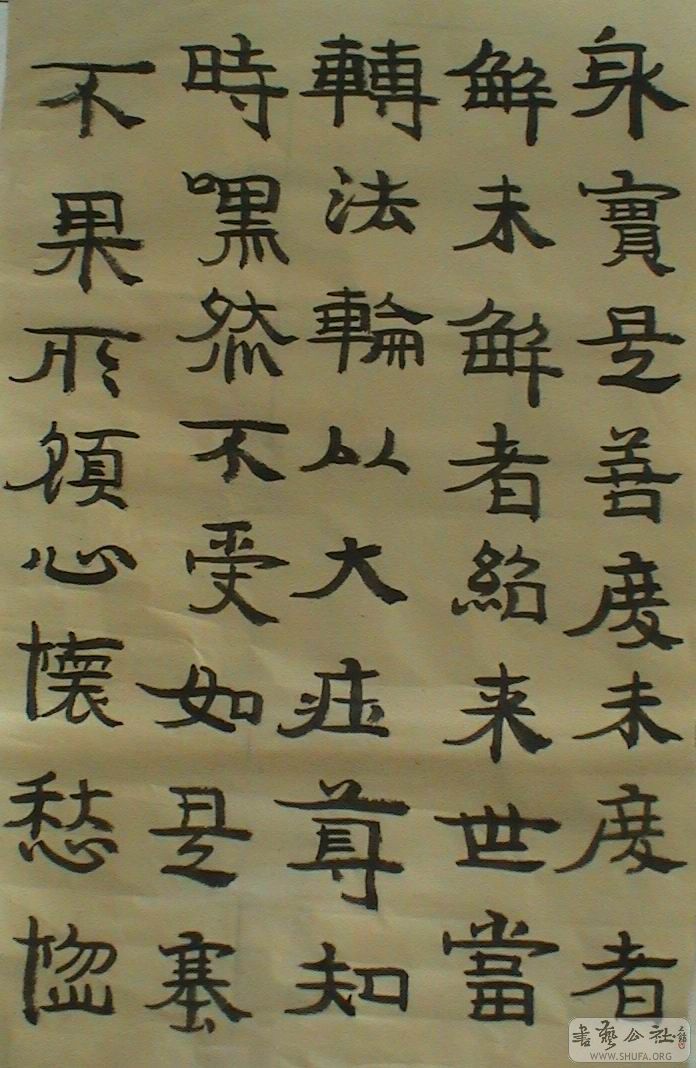 身實是善度未度者
解未解者紹来世當
轉法輪以大庄尊知
時嘿然不受如是
不果所願心懷愁惱
書藝公社
WWW.SHUFA.ORG